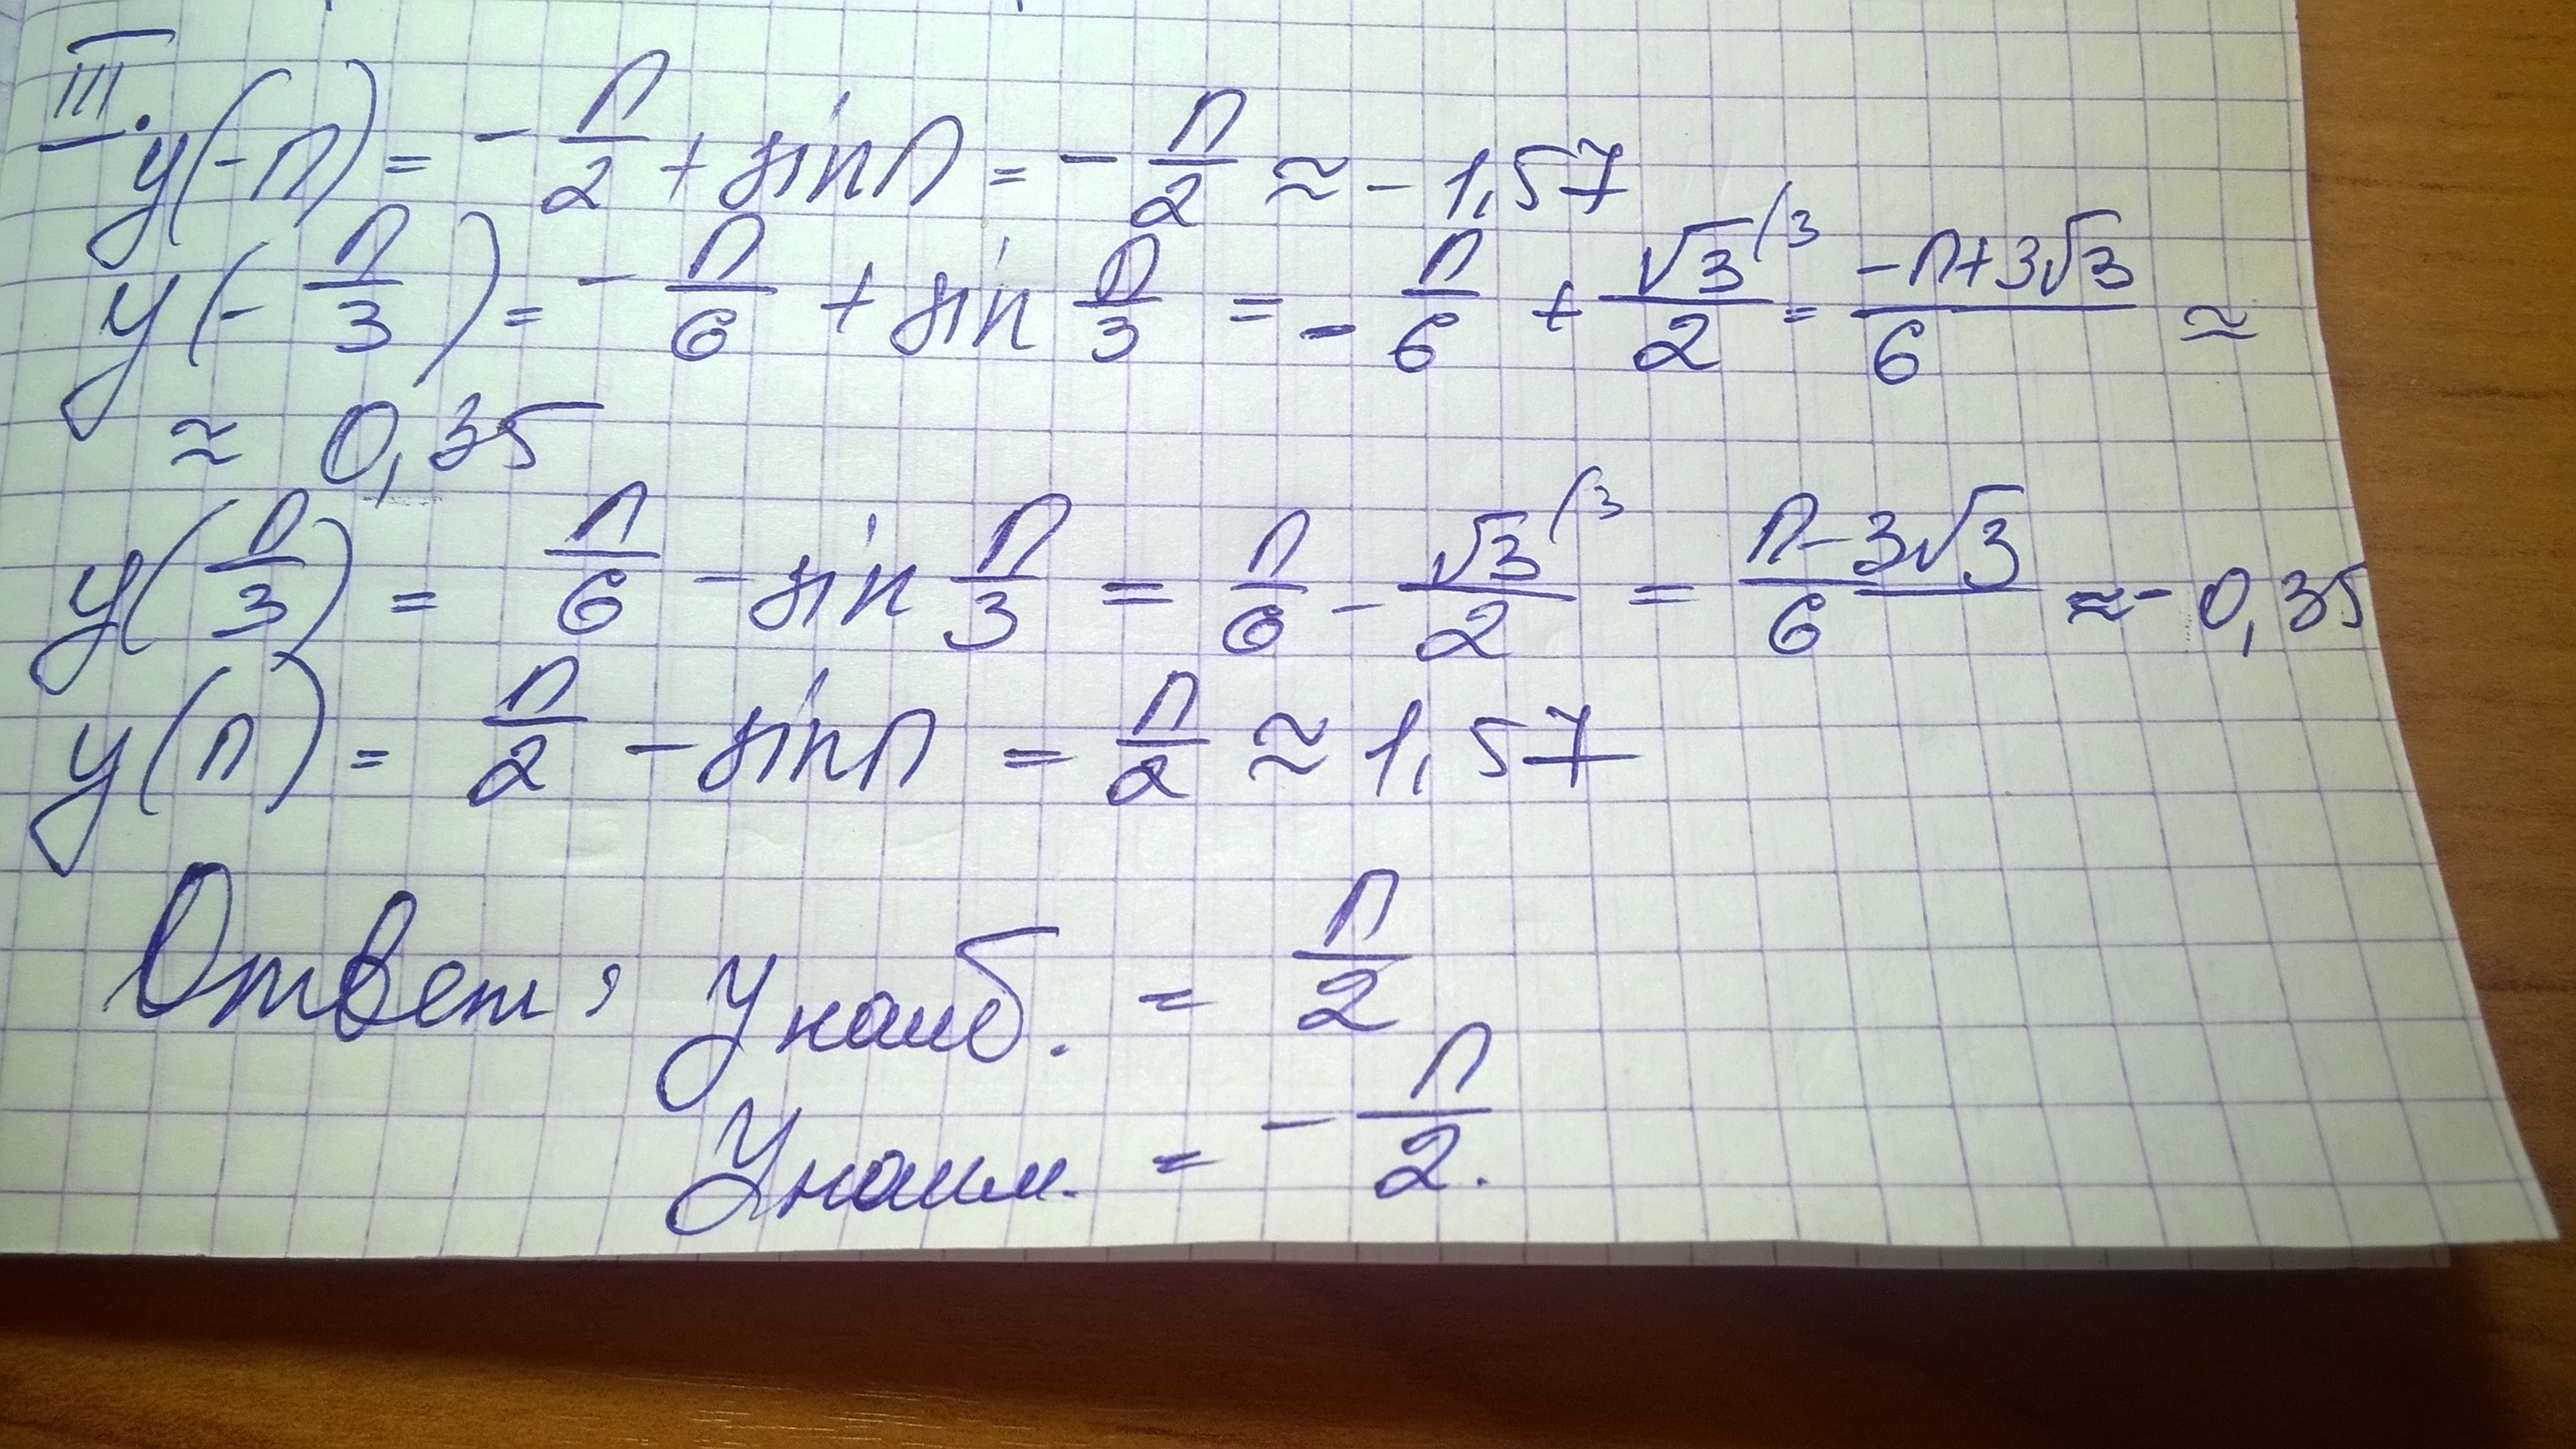 III.
y(-π) = -π/2 + sinπ = -π/2 ≈ -1,57
y(-π/3) = -π/6 + sin π/3 = -π/6 + √3/2 ⁽³ = (-π+3√3)/6 ≈
≈ 0,35
y(π/3) = π/6 - sin π/3 = π/6 - √3/2 ⁽³ = (π-3√3)/6 ≈ -0,35
y(π) = π/2 - sinπ = π/2 ≈ 1,57
Ответ: yнаиб. = π/2
yнаим. = -π/2.